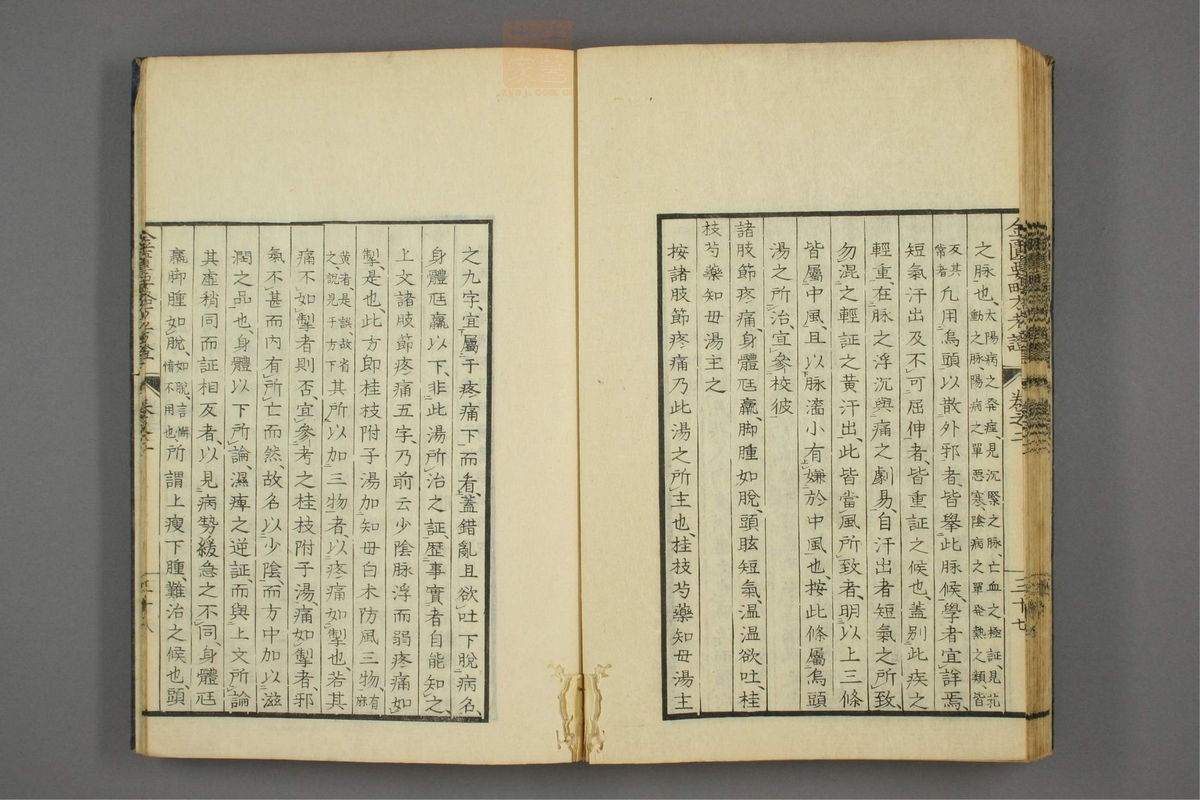 之脉也、太陽病之発痙、見沉緊之脉、亡血之極証、見芤動之脉、陽病之単悪寒、陰病之単発熱之類、皆
反其常者、凡用烏頭以散外邪者、皆擧此脉候、學者宜詳焉、
短氣汗出及不可屈伸者、皆重証之候也、蓋別此疾之
輕重、在脉之浮沉與痛之劇易、自汗出者短氣之所致、
勿混之輕証之黄汗出、此皆當風所致者、明以上三條
皆屬中風、且以脉濇小有嫌於中風也、按此條屬烏頭
湯之所治、宜參校彼
諸肢節疼痛、身體尫羸、脚腫如脫、頭眩短氣、温温欲吐、桂
枝芍藥知毋湯主之
按諸肢節疼痛乃此湯之所主也、桂枝芍藥知毋湯主
之九字、宜屬于疼痛下而看、蓋錯亂且欲吐下脫病名、
身體尫羸以下、非此湯所治之証、歷事實者自能知之、
上文諸肢節疼痛五字、乃前云少陰脉浮而弱疼痛如
掣、是也、此方即桂枝附子湯加知毋白朮防風三物、有麻
黄者、是誤故省之、説見于方下其所以加三物者、以疼痛如掣也、若其
痛不如掣者則否、宜參考之桂枝附子湯痛如掣者、邪
氣不甚而内有所亡而然、故名以少陰、而方中加以滋
潤之品也、身體以下所論、濕痺之逆証、而與上文所論
其虚稍同而証相反者、以見病勢緩急之不同、身體尫
羸脚腫如脫、如脫、言懈惰不用也所謂上瘦下腫、難治之候也、頭
金匱要略方考證 卷之二 三十七